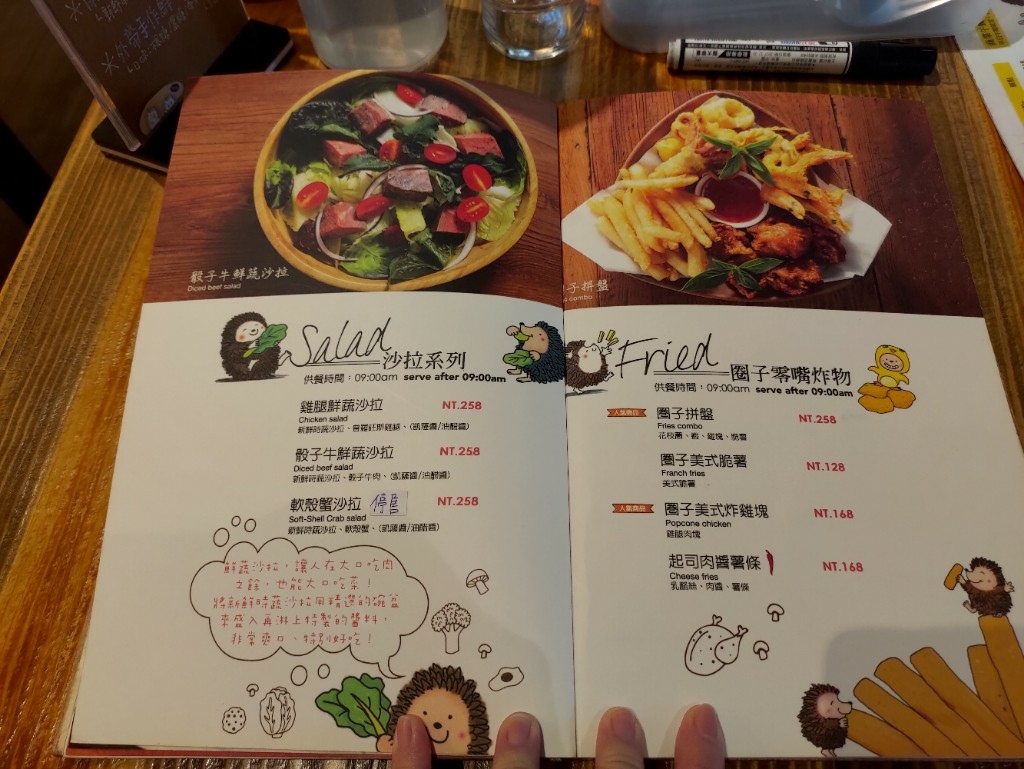 骰子牛鮮蔬沙拉
Diced beef salad
Salad
沙拉系列
供餐時間:09:00am serve after 09:00am
雞腿鮮蔬沙拉 NT.258
Chicken salad
骰子牛鮮蔬沙拉 NT.258
Diced beef salad
新鮮時蔬沙拉、骰子牛肉、(凱薩醬/油醋醬)
軟殼蟹沙拉 停售 NT.258
Soft-Shell Crab salad
新鮮時蔬沙拉、軟殼蟹、(凱薩醬/油醋醬)
鮮蔬沙拉,讓人在大口吃肉
之餘,也能大口吃菜!
將新鮮時蔬沙拉用精選的碗盆
來盛入再淋上特製的醬料,
非常爽口、特別好吃!
子拼盤
combo
Fried
圈子零嘴炸物
供餐時間:09:00am serve after 09:00am
人氣商品 圈子拼盤 NT.258
Fries combo
圈子美式脆薯 NT.128
Franch fries
美式脆薯
人氣商品 圈子美式炸雞塊 NT.168
Popcone chicken
雞腿肉塊
起司肉醬薯條 NT.168
Cheese fries
乳酪絲、肉醬、薯條